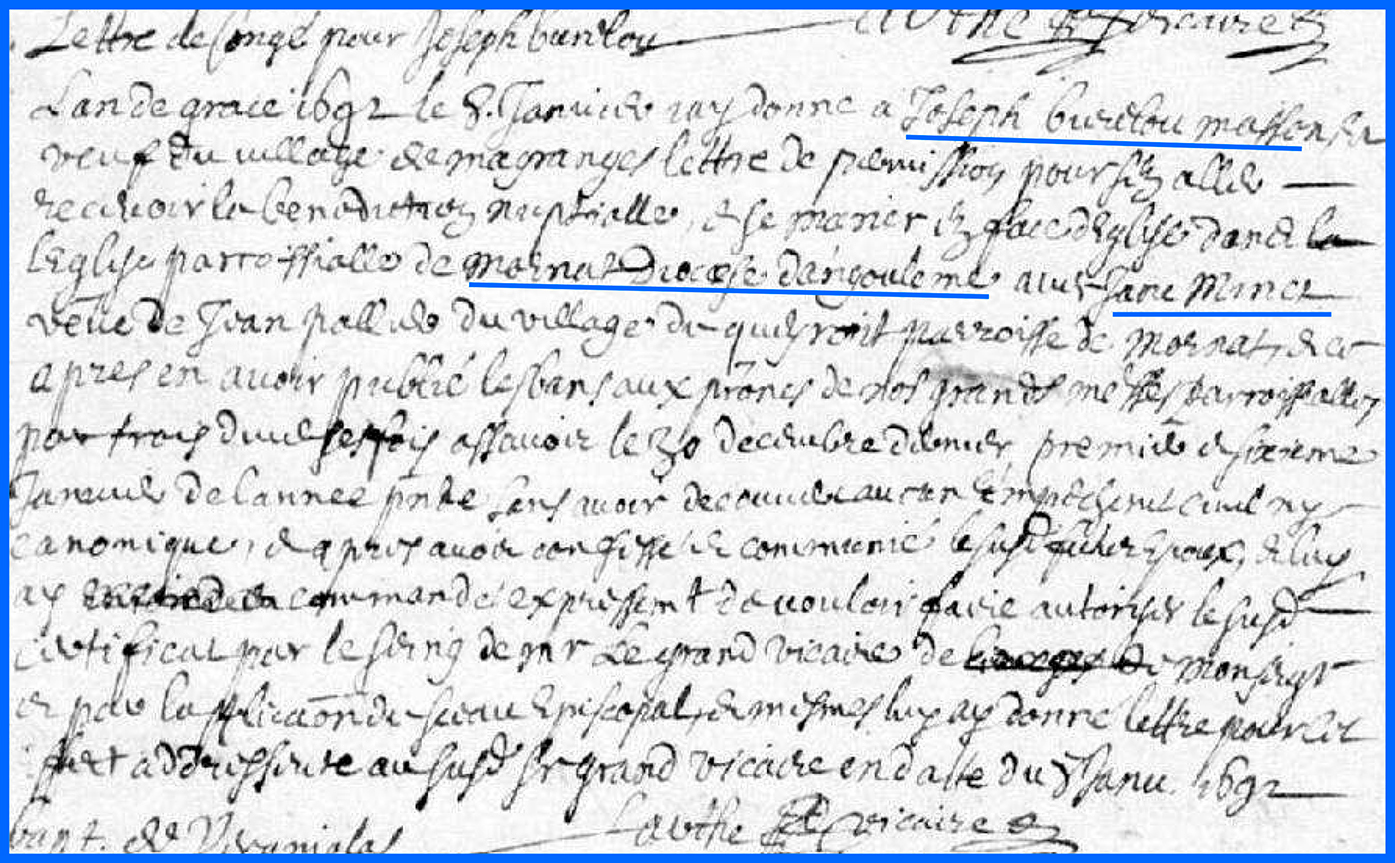 Lauthe vicaire
Lettre de Congé pour Joseph burelou
Lan de grace 1692 le 8. Janvier jay donné a Joseph burelou masson
veuf du village de magranges lettre de permission pour aller
recevoir la benediction nuptialle, & se marier en face deglise dans la
leglise parroissialle de mornat Diocese dangouleme avec Jane
veuve de Jean pallier du village du parroisse de mornat, & ce
apres en avoir publié les bans aux prônes de nos grandes messes parroissialles
par trois diverses fois assavoir le 30 decembre dernier premier & sixieme
Janvier de lannee pnte sans avoir decouvert aucun empechemt civil ny
canonique, & apres avoir confessé & communié le susd futur Epoux, & luy
ay commandé expressemt de vouloir faire autoriser le susd
certificat par le seing de mr Le grand vicaire de monseigr
et par laplicaõn du sceau Episcopal, & mesmes luy ay donné lettre pour cet
effect addressente au susd sr grand vicaire en datte du 8 Janv. 1692
Lauthe vicaire
bapt. de